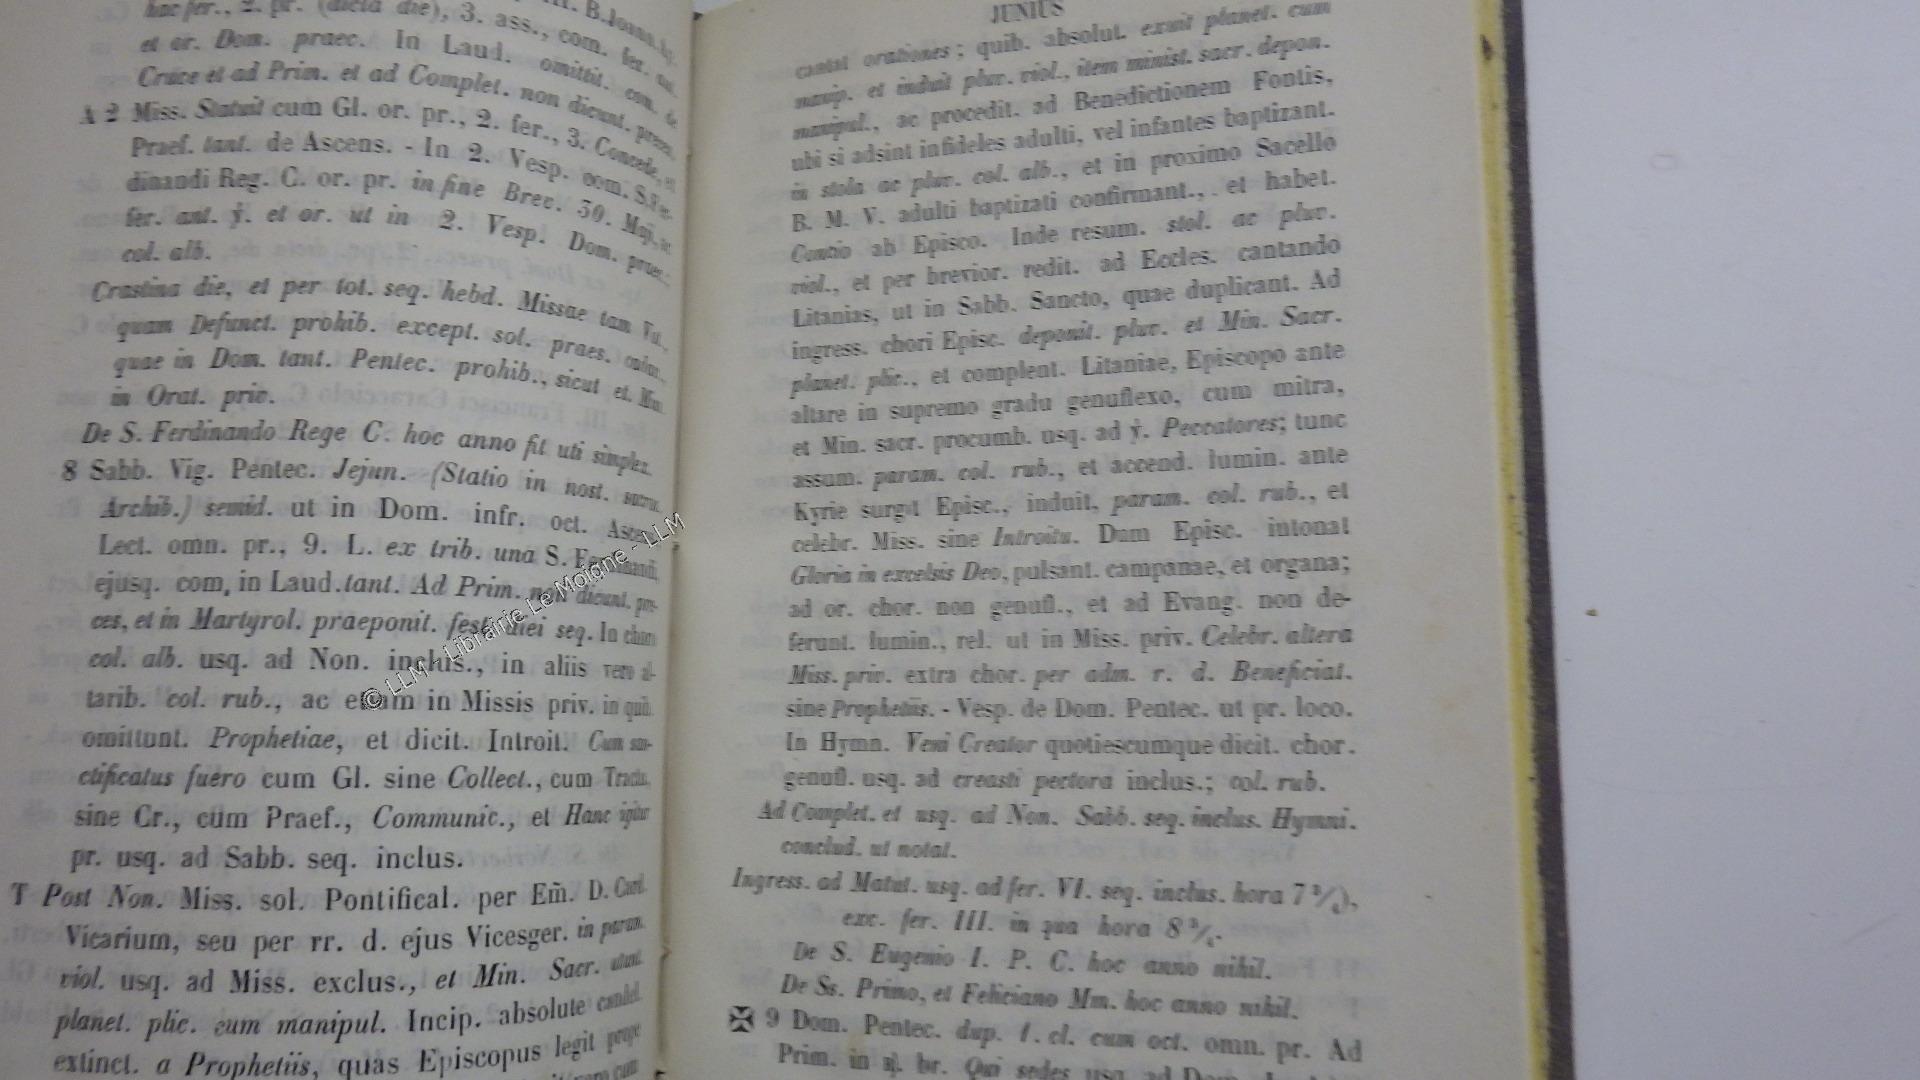 hac fer., 2. pr. (dicta die), 3. ass., com. fer. ant.
et or. Dom. praec. In Laud. omittit. com. de
Cruce et ad Prim. et ad Complet. non dicunt. preces.
A 2 Miss. Statuit cum Gl. or. pr., 2. fer., 3. Concede, et
Praef. tant. de Ascens. - In 2. Vesp. com. S. Fer-
dinandi Reg. C. or. pr. in fine Brev. 30. Maji, ac
fer. ant. ℣. et or. ut in 2. Vesp. Dom. praec.;
col. alb.
Crastina die, et per tot. seq. hebd. Missae tam Vot.,
quam Defunct. prohib. except. sol. praes. cadav.,
quae in Dom. tant. Pentec. prohib., sicut et. Miss.
in Orat. priv.
De S. Ferdinando Rege C. hoc anno fit uti simplex.
8 Sabb. Vig. Pentec. Jejun. (Statio in nost. sacros.
Archib.) semid. ut in Dom. infr. oct. Ascens.
Lect. omn. pr., 9. L. ex trib. una S. Ferdinandi,
ejusq. com, in Laud. tant. Ad Prim. non dicunt. pre-
ces, et in Martyrol. praeponit. festi diei seq. In choro
col. alb. usq. ad Non. inclus., in aliis vero al-
tarib. col. rub., ac etiam in Missis priv. in quib.
omittunt. Prophetiae, et dicit. Introit. Cum san-
ctificatus fuero cum Gl. sine Collect., cum Tractu,
sine Cr., cum Praef., Communic., et Hanc igitur
pr. usq. ad Sabb. seq. inclus.
T Post Non. Miss. sol. Pontifical. per Em̃. D. Card.
Vicarium, seu per rr. d. ejus Vicesger. in param.
viol. usq. ad Miss. exclus., et Min. Sacr. utunt.
planet. plic. cum manipul. Incip. absolute candel.
extinct. a Prophetiis, quas Episcopus legit prope
cum
© LLM - Librairie Le Moigne - LLM
JUNIUS
cantat orationes; quib. absolut. exuit planet. cum
manip. et induit pluv. viol., item minist. sacr. depon.
manipul., ac procedit. ad Benedictionem Fontis,
ubi si adsint infideles adulti, vel infantes baptizant.
in stola ac pluv. col. alb., et in proximo Sacello
B. M. V. adulti baptizati confirmant., et habet.
Contio ab Episco. Inde resum. stol. ac pluv.
viol., et per brevior. redit. ad Eccles. cantando
Litanias, ut in Sabb. Sancto, quae duplicant. Ad
ingress. chori Episc. deponit. pluv. et Min. Sacr.
planet. plic., et complent. Litaniae, Episcopo ante
altare in supremo gradu genuflexo, cum mitra,
et Min. sacr. procumb. usq. ad ℣. Peccatores; tunc
assum. param. col. rub., et accend. lumin. ante
Kyrie surgit Episc., induit, param. col. rub., et
celebr. Miss. sine Introitu. Dum Episc. intonat
Gloria in excelsis Deo, pulsant. campanae, et organa;
ad or. chor. non genufl., et ad Evang. non de-
ferunt. lumin., rel. ut in Miss. priv. Celebr. altera
Miss. priv. extra chor. per adm. r. d. Beneficiat.
sine Prophetiis. - Vesp. de Dom. Pentec. ut pr. loco.
In Hymn. Veni Creator quotiescumque dicit. chor.
genufl. usq. ad creasti pectora inclus.; col. rub.
Ad Complet. et usq. ad Non. Sabb. seq. inclus. Hymni.
conclud. ut notat.
Ingress. ad Matut. usq. ad fer. VI. seq. inclus. hora 7 3/4,
exc. fer. III. in qua hora 8 3/4.
De S. Eugenio I. P. C. hoc anno nihil.
De Ss. Primo, et Feliciano Mm. hoc anno nihil.
✠ 9 Dom. Pentec. dup. 1. cl. cum oct. omn. pr. Ad
Prim. in ℟. br. Qui sedes usq. ad Dom.